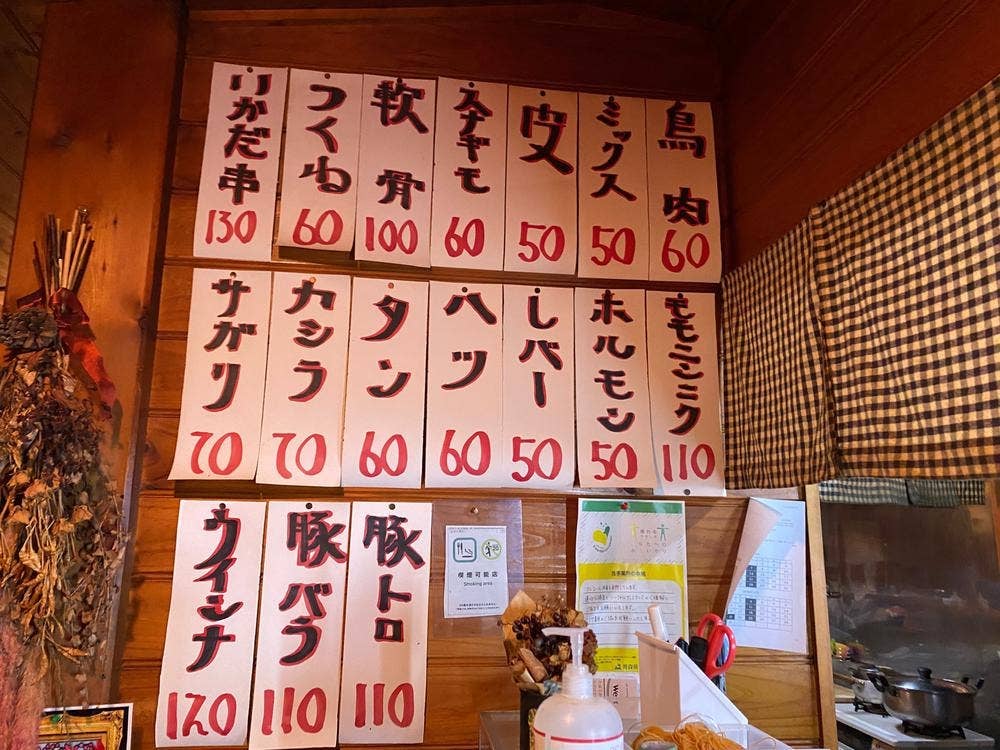 鳥肉
60
ミックス
50
皮
50
スナギモ
60
軟骨
100
つくね
60
いかだ串
130
モモニンニク
110
ホルモン
50
レバー
50
ハツ
60
タン
60
カシラ
70
サガリ
70
豚トロ
110
豚バラ
110
ウインナ
120
喫煙可能店
Smoking area